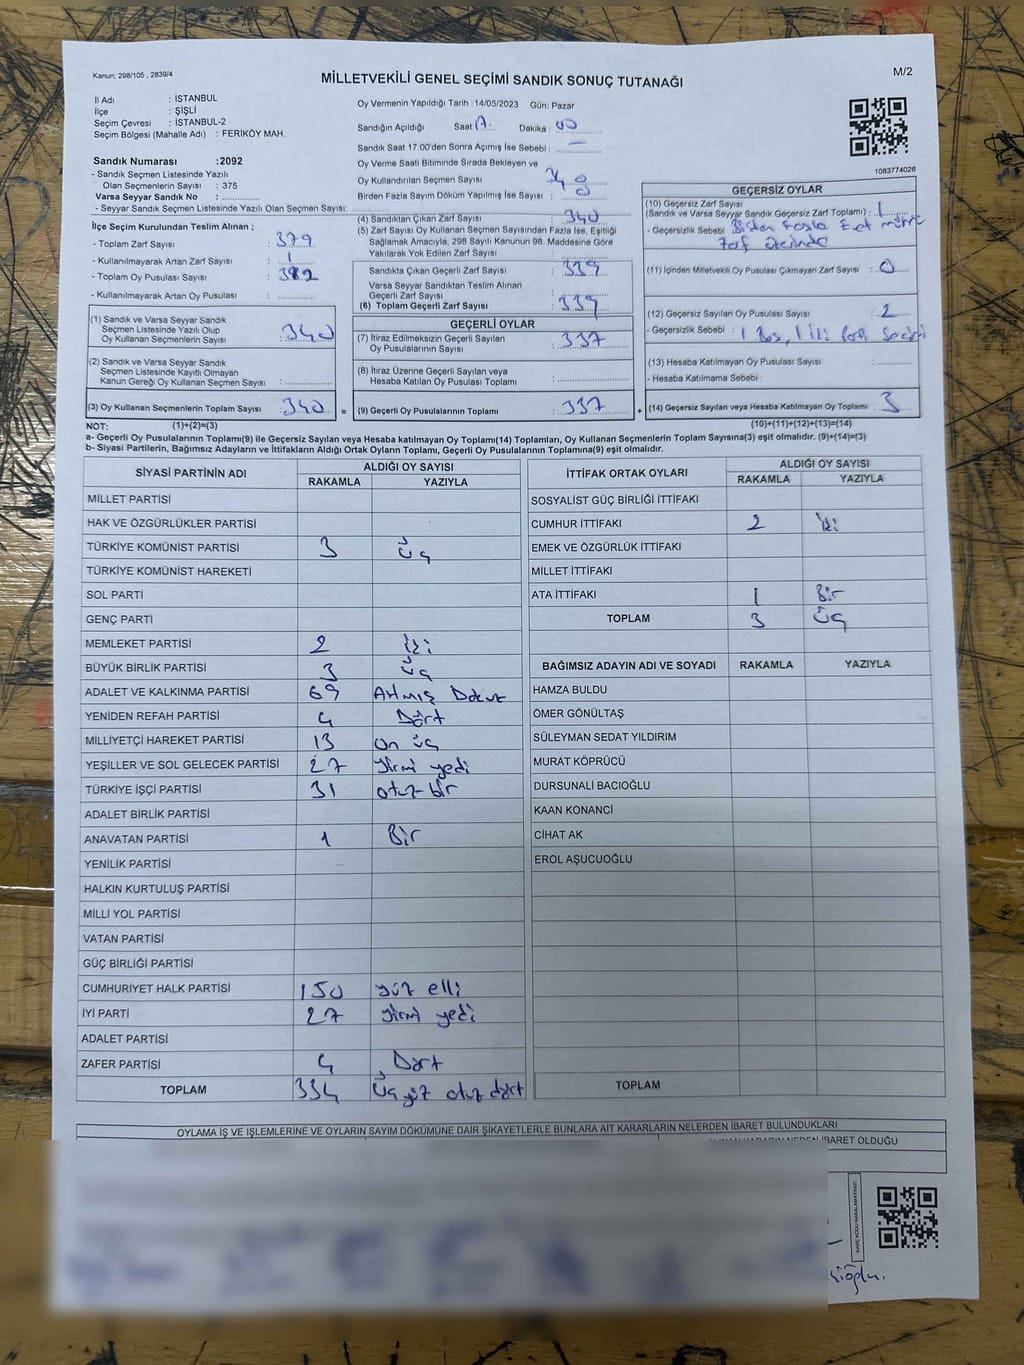 Kanun; 298/105 , 2839/4
MİLLETVEKİLİ GENEL SEÇİMİ SANDIK SONUÇ TUTANAĞI
M/2
İl Adı : İSTANBUL
İlçe : ŞİŞLİ
Seçim Çevresi : İSTANBUL-2
Seçim Bölgesi (Mahalle Adı) : FERİKÖY MAH.
Sandık Numarası :2092
- Sandık Seçmen Listesinde Yazılı
Olan Seçmenlerin Sayısı : 375
Varsa Seyyar Sandık No : ............
- Seyyar Sandık Seçmen Listesinde Yazılı Olan Seçmen Sayısı: ............
Oy Vermenin Yapıldığı Tarih : 14/05/2023 Gün: Pazar
Sandığın Açıldığı Saat 17 Dakika : 00
Sandık Saat 17:00'den Sonra Açımış İse Sebebi : —
Oy Verme Saati Bitiminde Sırada Bekleyen ve
Oy Kullandırılan Seçmen Sayısı
Birden Fazla Sayım Döküm Yapılmış İse Sayısı :
1083774026
İlçe Seçim Kurulundan Teslim Alınan ;
- Toplam Zarf Sayısı : 379
- Kullanılmayarak Artan Zarf Sayısı : 1
- Toplam Oy Pusulası Sayısı :
- Kullanılmayarak Artan Oy Pusulası : ............
(1) Sandık ve Varsa Seyyar Sandık
Seçmen Listesinde Yazılı Olup
Oy Kullanan Seçmenlerin Sayısı : 340
(2) Sandık ve Varsa Seyyar Sandık
Seçmen Listesinde Kayıtlı Olmayan
Kanun Gereği Oy Kullanan Seçmen Sayısı : ............
(3) Oy Kullanan Seçmenlerin Toplam Sayısı : 340 =
(4) Sandıktan Çıkan Zarf Sayısı : 340
(5) Zarf Sayısı Oy Kullanan Seçmen Sayısından Fazla İse, Eşitliği
Sağlamak Amacıyla; 298 Sayılı Kanunun 98. Maddesine Göre
Yakılarak Yok Edilen Zarf Sayısı : ............
Sandıkta Çıkan Geçerli Zarf Sayısı : 339
Varsa Seyyar Sandıktan Teslim Alınan
Geçerli Zarf Sayısı : ............
(6) Toplam Geçerli Zarf Sayısı : 339
GEÇERLİ OYLAR
(7) İtiraz Edilmeksizin Geçerli Sayılan
Oy Pusulalarının Sayısı : 337
(8) İtiraz Üzerine Geçerli Sayılan veya
Hesaba Katılan Oy Pusulası Toplamı : ............
(9) Geçerli Oy Pusulalarının Toplamı : 337 +
GEÇERSİZ OYLAR
(10) Geçersiz Zarf Sayısı
(Sandık ve Varsa Seyyar Sandık Geçersiz Zarf Toplamı) : 1
- Geçersizlik Sebebi : Birden Fazla Evet mührü
zarf üzerinde
(11) İçinden Milletvekili Oy Pusulası Çıkmayan Zarf Sayısı : 0
(12) Geçersiz Sayılan Oy Pusulası Sayısı : 2
- Geçersizlik Sebebi : 1 Boş, 1 iki parti
(13) Hesaba Katılmayan Oy Pusulası Sayısı : ............
- Hesaba Katılmama Sebebi :
(14) Geçersiz Sayılan veya Hesaba Katılmayan Oy Toplamı : 3
NOT: (1)+(2)=(3)
(10)+(11)+(12)+(13)=(14)
a- Geçerli Oy Pusulalarının Toplamı(9) ile Geçersiz Sayılan veya Hesaba katılmayan Oy Toplamı(14) Toplamları, Oy Kullanan Seçmenlerin Toplam Sayısına(3) eşit olmalıdır. (9)+(14)=(3)
b- Siyasi Partilerin, Bağımsız Adayların ve İttifakların Aldığı Ortak Oyların Toplamı, Geçerli Oy Pusulalarının Toplamına(9) eşit olmalıdır.
SİYASİ PARTİNİN ADI ALDIĞI OY SAYISI
RAKAMLA YAZIYLA
MİLLET PARTİSİ
HAK VE ÖZGÜRLÜKLER PARTİSİ
TÜRKİYE KOMÜNİST PARTİSİ 3 üç
TÜRKİYE KOMÜNİST HAREKETİ
SOL PARTİ
GENÇ PARTİ
MEMLEKET PARTİSİ 2 iki
BÜYÜK BİRLİK PARTİSİ 3 üç
ADALET VE KALKINMA PARTİSİ 69 Atmış Dokuz
YENİDEN REFAH PARTİSİ 4 Dört
MİLLİYETÇİ HAREKET PARTİSİ 13 on üç
YEŞİLLER VE SOL GELECEK PARTİSİ 27 yirmi yedi
TÜRKİYE İŞÇİ PARTİSİ 31 otuz bir
ADALET BİRLİK PARTİSİ
ANAVATAN PARTİSİ 1 Bir
YENİLİK PARTİSİ
HALKIN KURTULUŞ PARTİSİ
MİLLİ YOL PARTİSİ
VATAN PARTİSİ
GÜÇ BİRLİĞİ PARTİSİ
CUMHURİYET HALK PARTİSİ 150 yüz elli
İYİ PARTİ 27 yirmi yedi
ADALET PARTİSİ
ZAFER PARTİSİ 4 Dört
TOPLAM 334 üç yüz otuz dört
İTTİFAK ORTAK OYLARI ALDIĞI OY SAYISI
RAKAMLA YAZIYLA
SOSYALİST GÜÇ BİRLİĞİ İTTİFAKI
CUMHUR İTTİFAKI 2 iki
EMEK VE ÖZGÜRLÜK İTTİFAKI
MİLLET İTTİFAKI
ATA İTTİFAKI 1 Bir
TOPLAM 3 üç
BAĞIMSIZ ADAYIN ADI VE SOYADI RAKAMLA YAZIYLA
HAMZA BULDU
ÖMER GÖNÜLTAŞ
SÜLEYMAN SEDAT YILDIRIM
MURAT KÖPRÜCÜ
DURSUNALİ BACIOĞLU
KAAN KONANCİ
CİHAT AK
EROL AŞUCUOĞLU
TOPLAM
OYLAMA İŞ VE İŞLEMLERİNE VE OYLARIN SAYIM DÖKÜMÜNE DAİR ŞİKAYETLERLE BUNLARA AİT KARARLARIN NELERDEN İBARET BULUNDUKLARI
İBARET OLDUĞU
KARE KODU KARALAMAYINIZ!